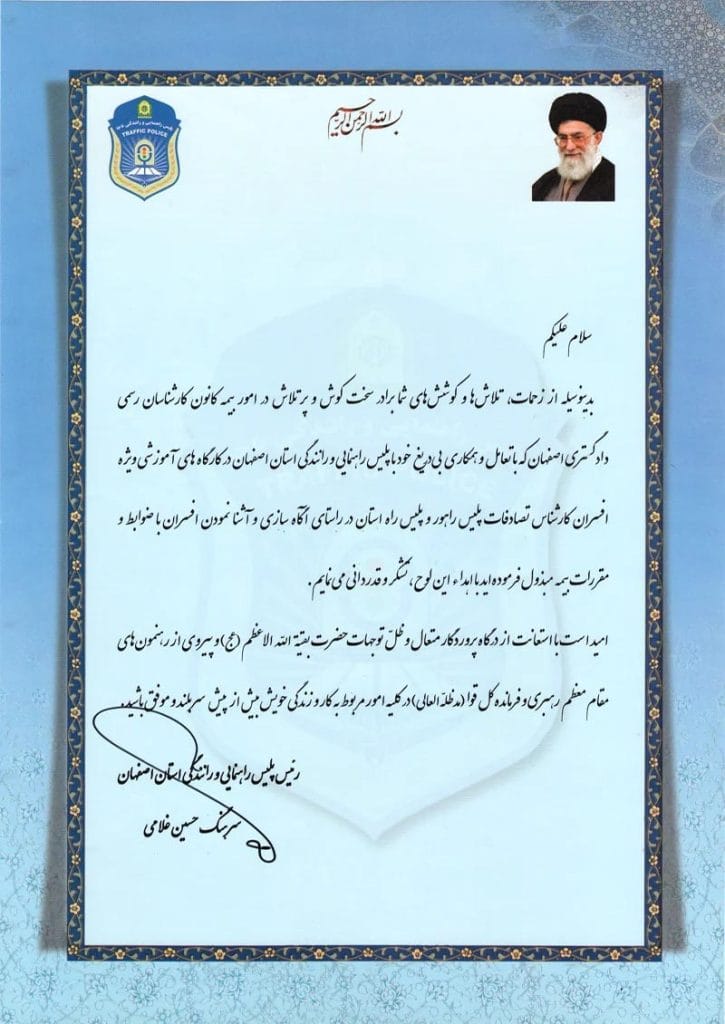 بسم الله الرحمن الرحیم
پلیس راهنمایی و رانندگی ناجا
TRAFFIC POLICE
سلام علیکم
بدینوسیله از زحمات، تلاش‌ها و کوشش‌های شما برادر سخت کوش و پرتلاش در امور بیمه کانون کارشناسان رسمی
دادگستری اصفهان که با تعامل و همکاری بی‌دریغ خود با پلیس راهنمایی و رانندگی استان اصفهان در کارگاه های آموزشی ویژه
افسران کارشناس تصادفات پلیس راهور و پلیس راه استان در راستای آگاه سازی و آشنا نمودن افسران با ضوابط و
مقررات بیمه مبذول فرموده اید با اهداء این لوح، تشکر و قدردانی می نمایم.
امید است با استعانت از درگاه پروردگار متعال و ظلّ توجهات حضرت بقیة الله الاعظم (عج) و پیروی از رهنمون های
مقام معظم رهبری و فرمانده کل قوا (مدظلّه العالی) در کلیه امور مربوط به کار و زندگی خویش بیش از پیش سربلند و موفق باشید.
رئیس پلیس راهنمایی و رانندگی استان اصفهان
سرهنگ حسین غلامی